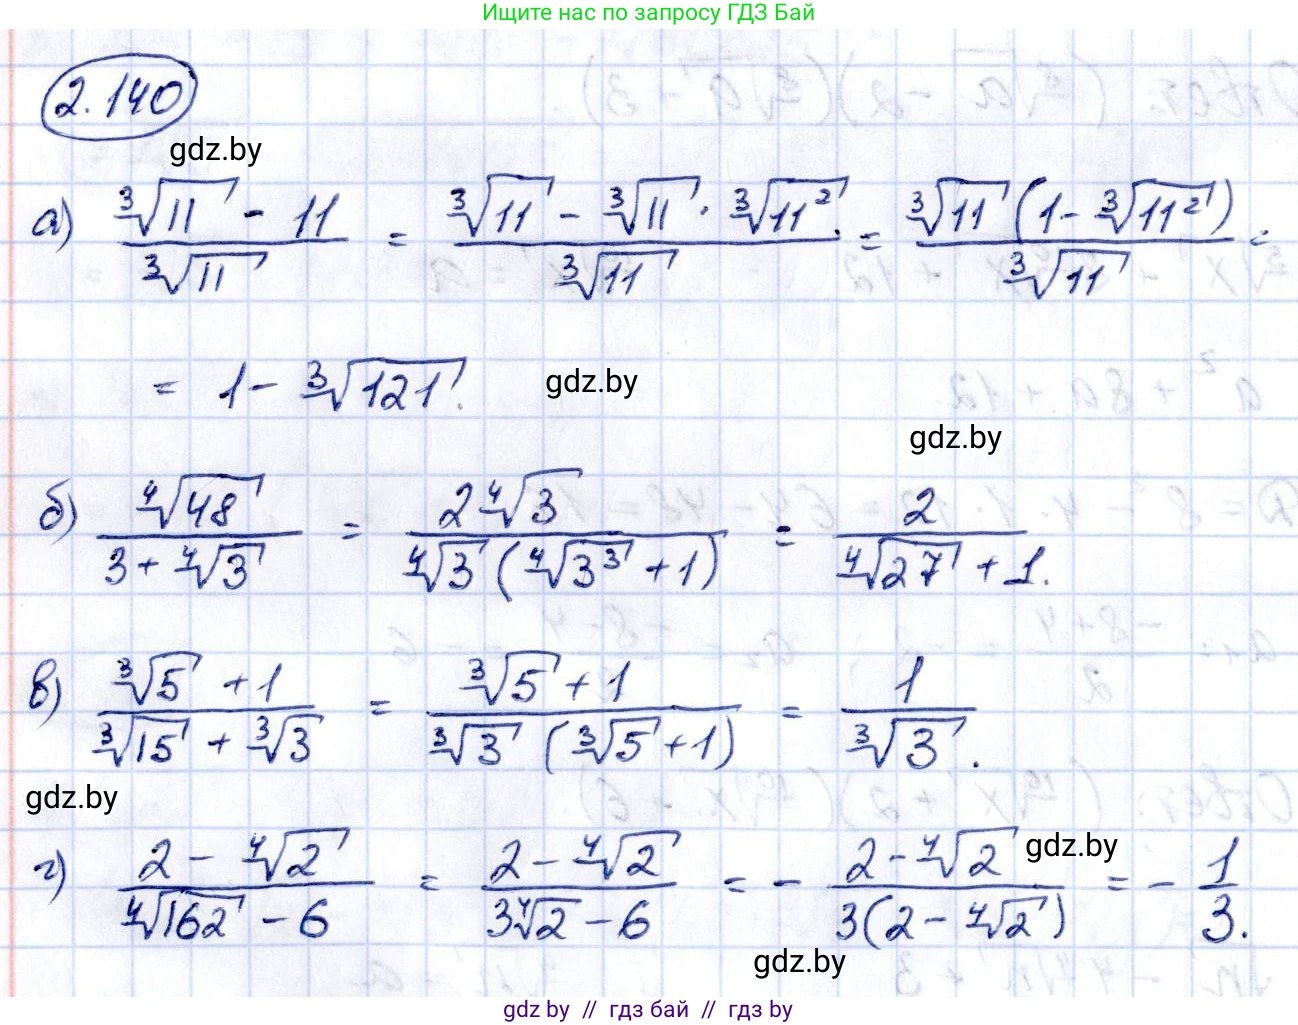 Ищите нас по запросу ГДЗ Бай
2.140
gdz.by
а) (∛11 - 11)/∛11 = (∛11 - ∛11 · ∛11²)/∛11 = ∛11 (1 - ∛11²)/∛11 =
= 1 - ∛121.
gdz.by
gdz.by
б) ∜48/(3 + ∜3) = 2∜3/(∜3 (∜3³ + 1)) = 2/(∜27 + 1).
в) (∛5 + 1)/(∛15 + ∛3) = (∛5 + 1)/(∛3 (∛5 + 1)) = 1/∛3.
gdz.by
г) (2 - ∜2)/(∜162 - 6) = (2 - ∜2)/(3∜2 - 6) = - (2 - ∜2)/(3(2 - ∜2)) = - 1/3.
gdz.by
gdz.by
gdz.by // гдз бай // гдз by